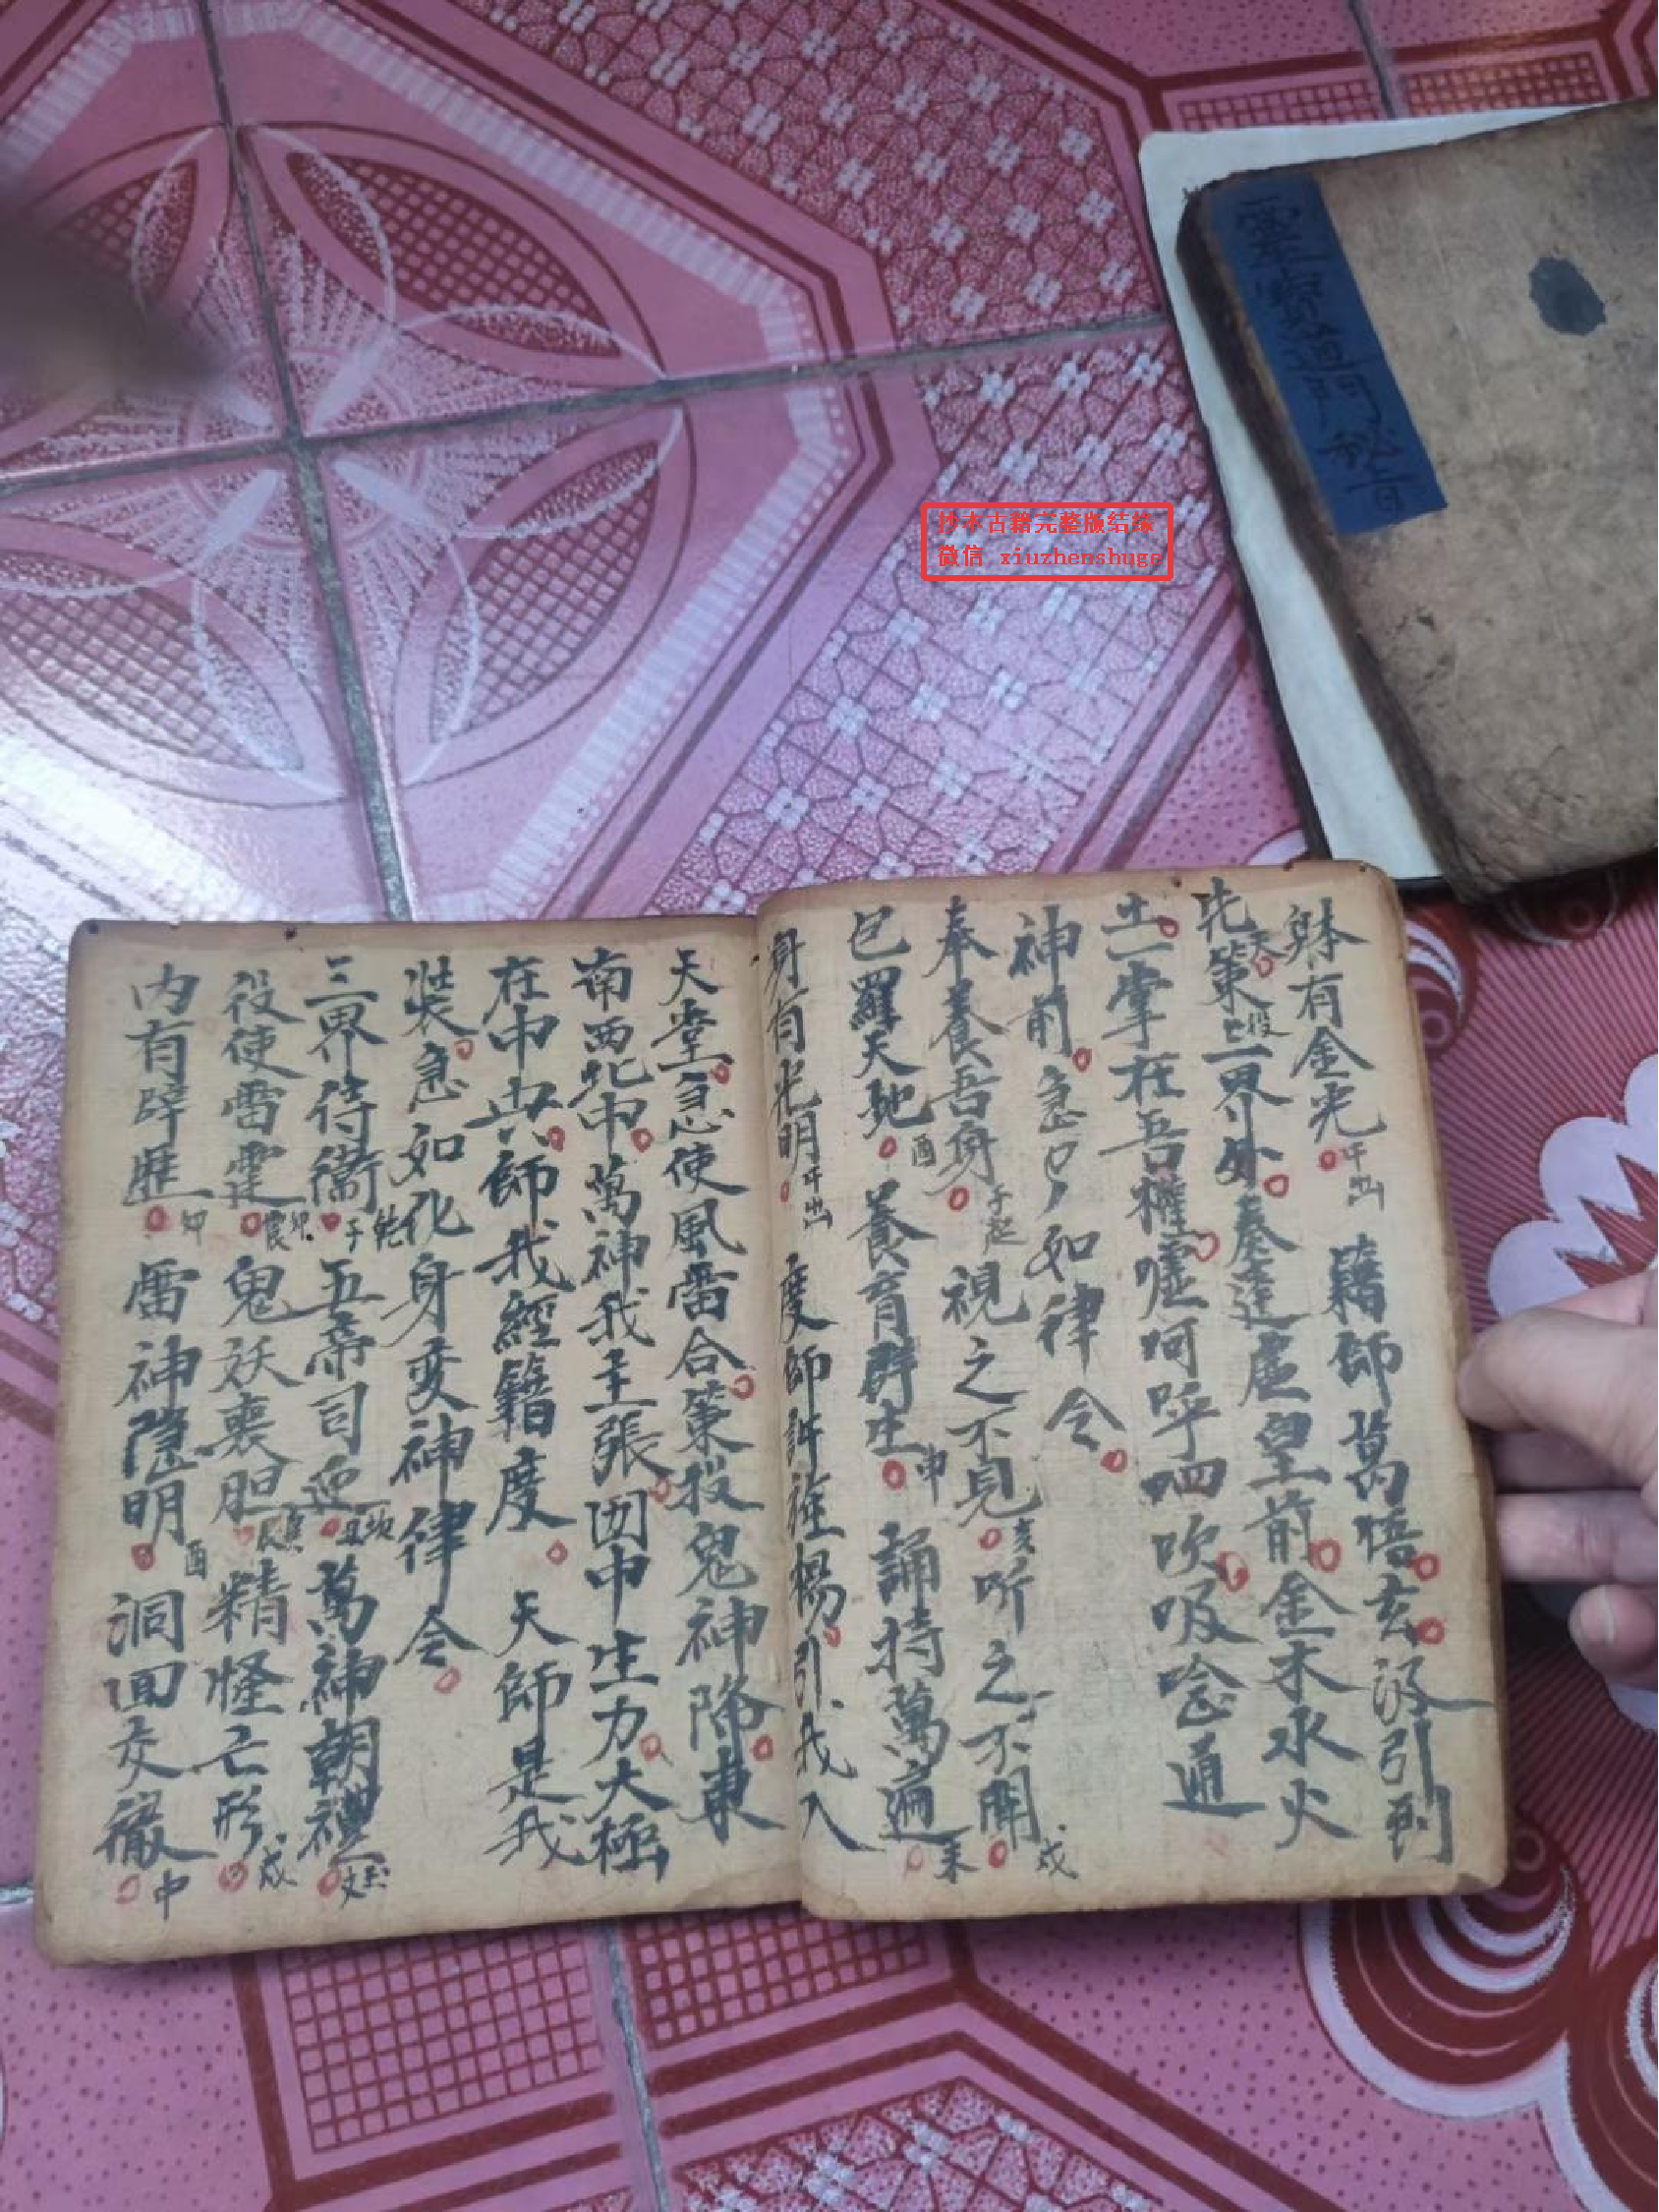 靈寶道門秘旨
抄本古籍完整版结缘
微信 xiuzhenshuge
躰有金光午出 籍師萬悟玄 引到
先天策役上三界外奏達虛皇前金木水火
土一掌在吾權噓呵呼呬吹吸念通
神前急急如律令
奉養吾身子起 視之不見亥听之不聞戌
包羅天地酉養育群生申誦持萬遍未
身有光明午出 度師許旌楊引我入
天堂急使風雷合策投鬼神降東
南西北中萬神我主張因中生力大極
在中共師我經籍度 天師是我
裝急如化身变神律令
三界侍衛子乾五帝司迎丑坎萬神朝禮
役使雷霆卯震鬼妖喪胆精怪亡形戌
内有辟歷卯雷神隱明酉洞回交徹中